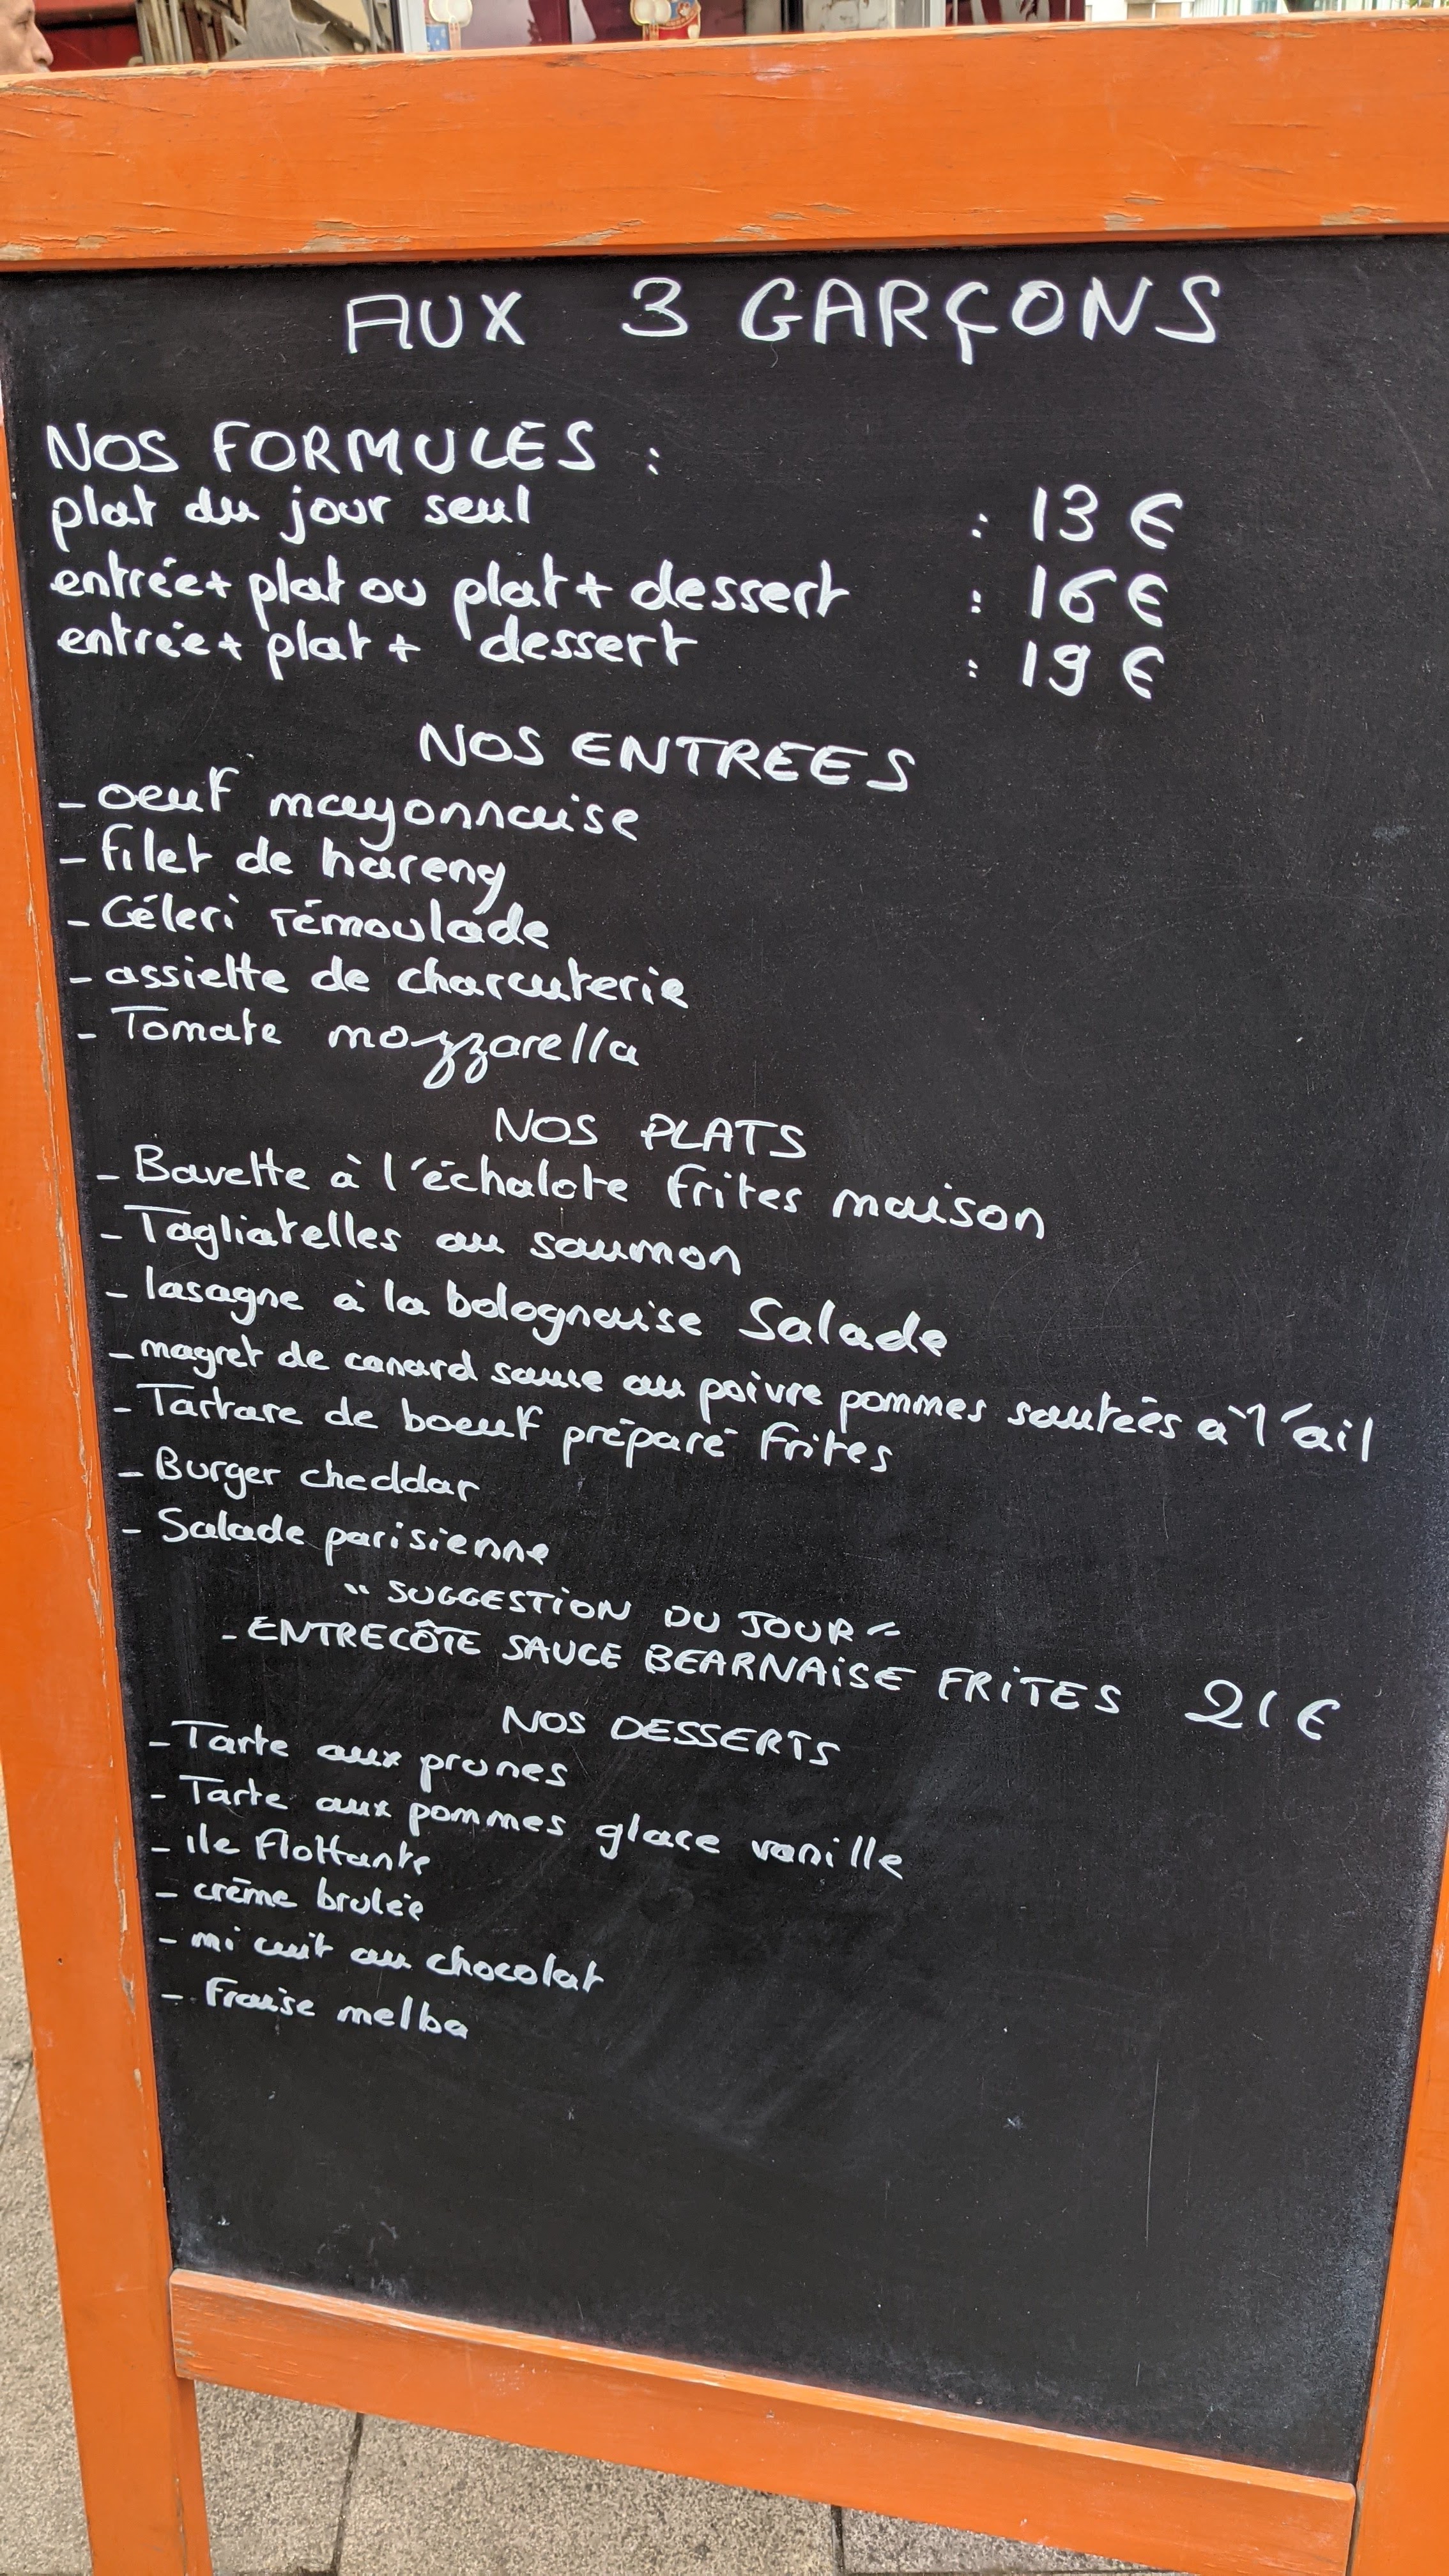 AUX 3 GARÇONS
NOS FORMULES :
plat du jour seul : 13 €
entrée+ plat ou plat + dessert : 16 €
entrée+ plat + dessert : 19 €
NOS ENTREES
- oeuf mayonnaise
- filet de hareng
- Céleri rémoulade
- assiette de charcuterie
- Tomate mozzarella
NOS PLATS
- Bavette à l'échalote frites maison
- Tagliatelles au saumon
- lasagne à la bolognaise Salade
- magret de canard sauce au poivre pommes sautées à l'ail
- Tartare de boeuf préparé frites
- Burger cheddar
- Salade parisienne
" SUGGESTION DU JOUR "
- ENTRECÔTE SAUCE BEARNAISE FRITES 21 €
NOS DESSERTS
- Tarte aux prunes
- Tarte aux pommes glace vanille
- ile flottante
- crème brulée
- mi cuit au chocolat
- Fraise melba